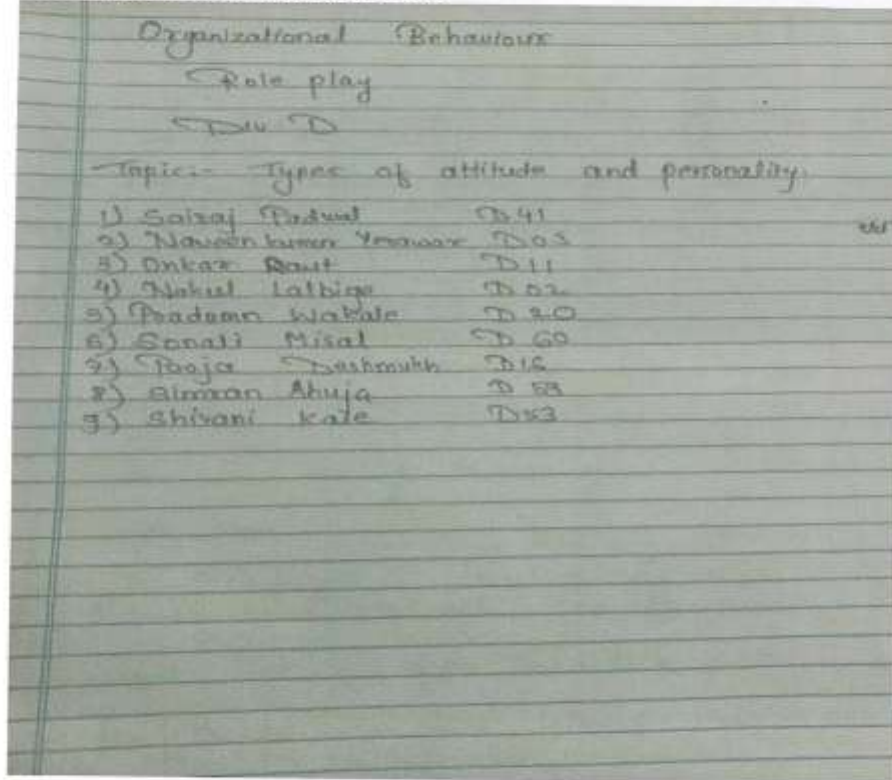 Organizational Behaviour
Role play
Div D
Topic:- Types of attitude and personality.
1) Sairaj Padwal D41
2) Naveen kumar D05
3) Onkar Raut D11
4) Nakul Lalbige D02
5) Pradumn Wakale D20
6) Sonali Misal D60
7) Pooja Deshmukh D16
8) Simran Ahuja D 59
9) Shivani Kale D53